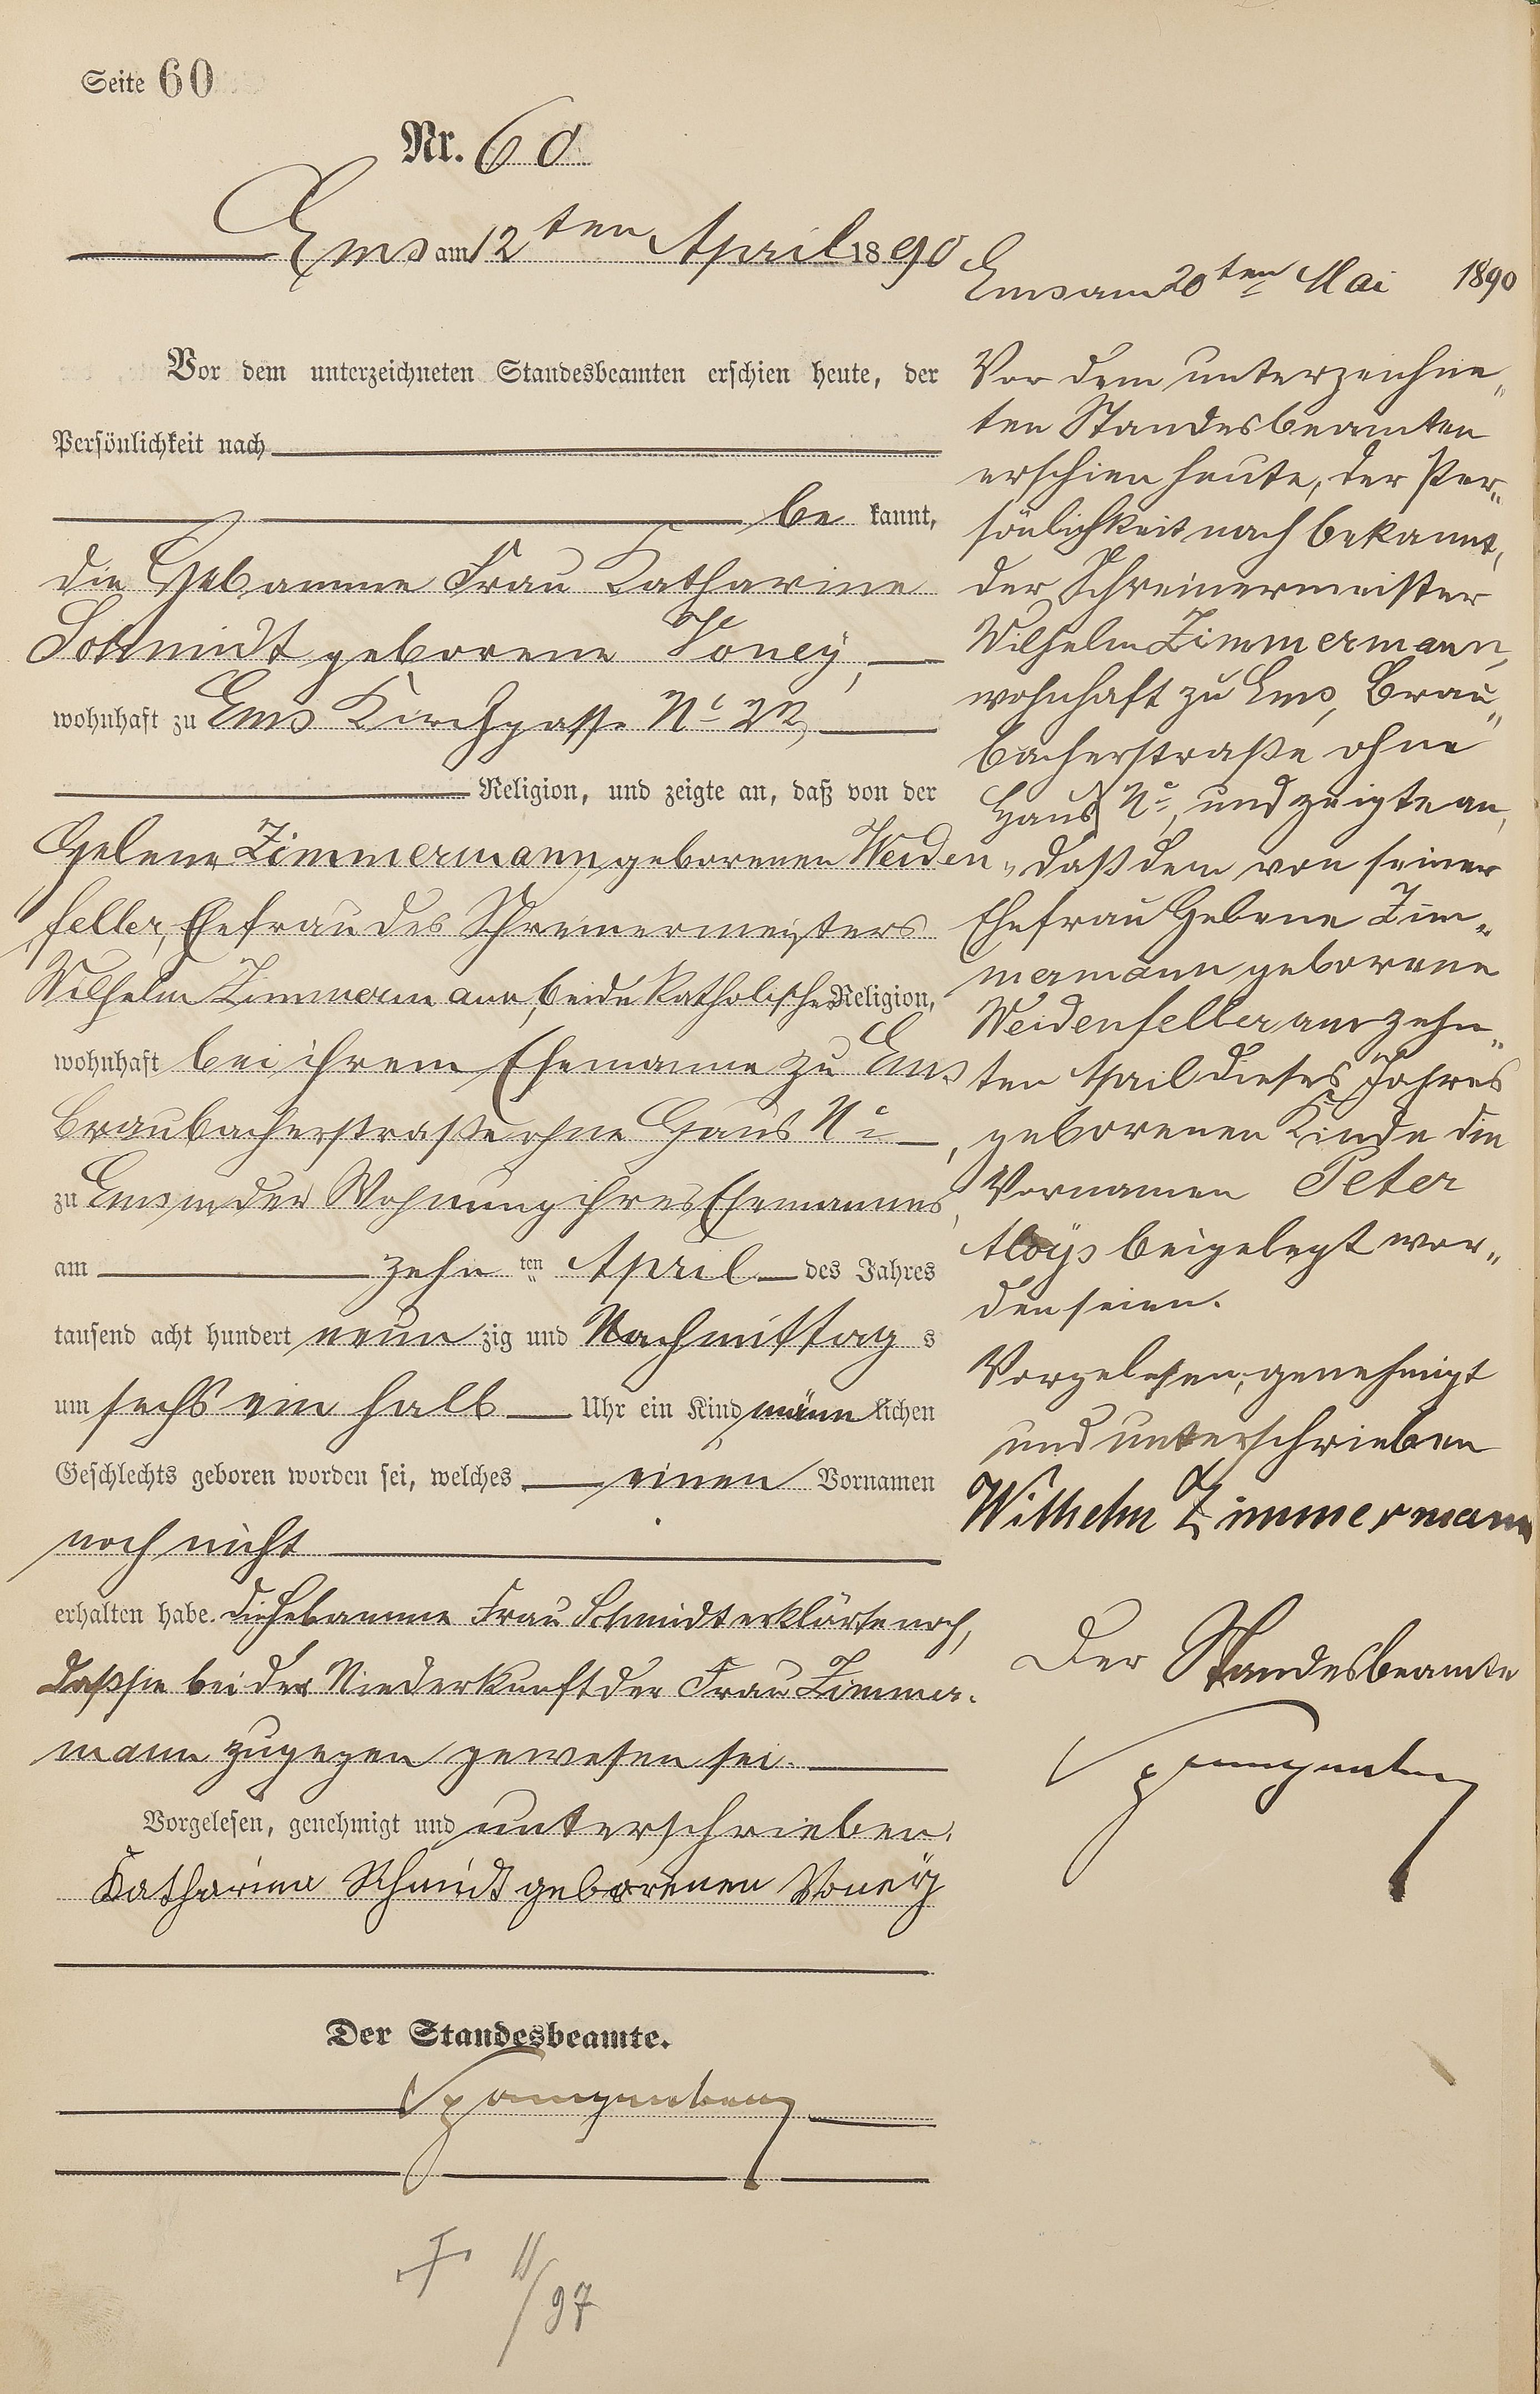 Seite 60
Nr. 60
Ems am 12ten April 1890
Vor dem unterzeichneten Standesbeamten erschien heute, der
Persönlichkeit nach
be kannt,
die Hebamme Frau Katharine
Schmidt geborene Voney,
wohnhaft zu Ems Kirchgasse No 22,
Religion, und zeigte an, daß von der
Helene Zimmermann geborenen Weiden„
feller, Ehefrau des Schreinermeisters
Wilhelm Zimmermann, beide katholischer Religion,
wohnhaft bei ihrem Ehemanne zu Ems
Braubacherstraße ohne Haus No,
zu Ems in der Wohnung ihres Ehemannes,
am zehn ten April des Jahres
tausend acht hundert neun zig und Nachmittag s
um sechs ein halb Uhr ein Kind männ lichen
Geschlechts geboren worden sei, welches einen Vornamen
noch nicht
erhalten habe. die Hebamme Frau Schmidt erklärte noch,
daß sie bei der Niederkunft der Frau Zimmer-
mann zugegen gewesen sei.
Vorgelesen, genehmigt und unterschrieben.
Katharina Schmidt geborenen Voney
Der Standesbeamte.
Spangenberg
† 11/97
Ems am 20ten Mai 1890
Vor dem unterzeichne„
ten Standesbeamten
erschien heute, der Per„
sönlichkeit nach bekannt,
der Schreinermeister
Wilhelm Zimmermann,
wohnhaft zu Ems, Brau„
bacherstraße ohne
Haus No, und zeigte an,
daß dem von seiner
Ehefrau Helene Zim„
mermann geborene
Weidenfeller am zehn„
ten April dieses Jahres
geborenen Kinde die
Vornamen Peter
Aloÿs beigelegt wor„
den seien.
Vorgelesen, genehmigt
und unterschrieben
Wilhelm Zimmermann
Der Standesbeamte
Spangenberg